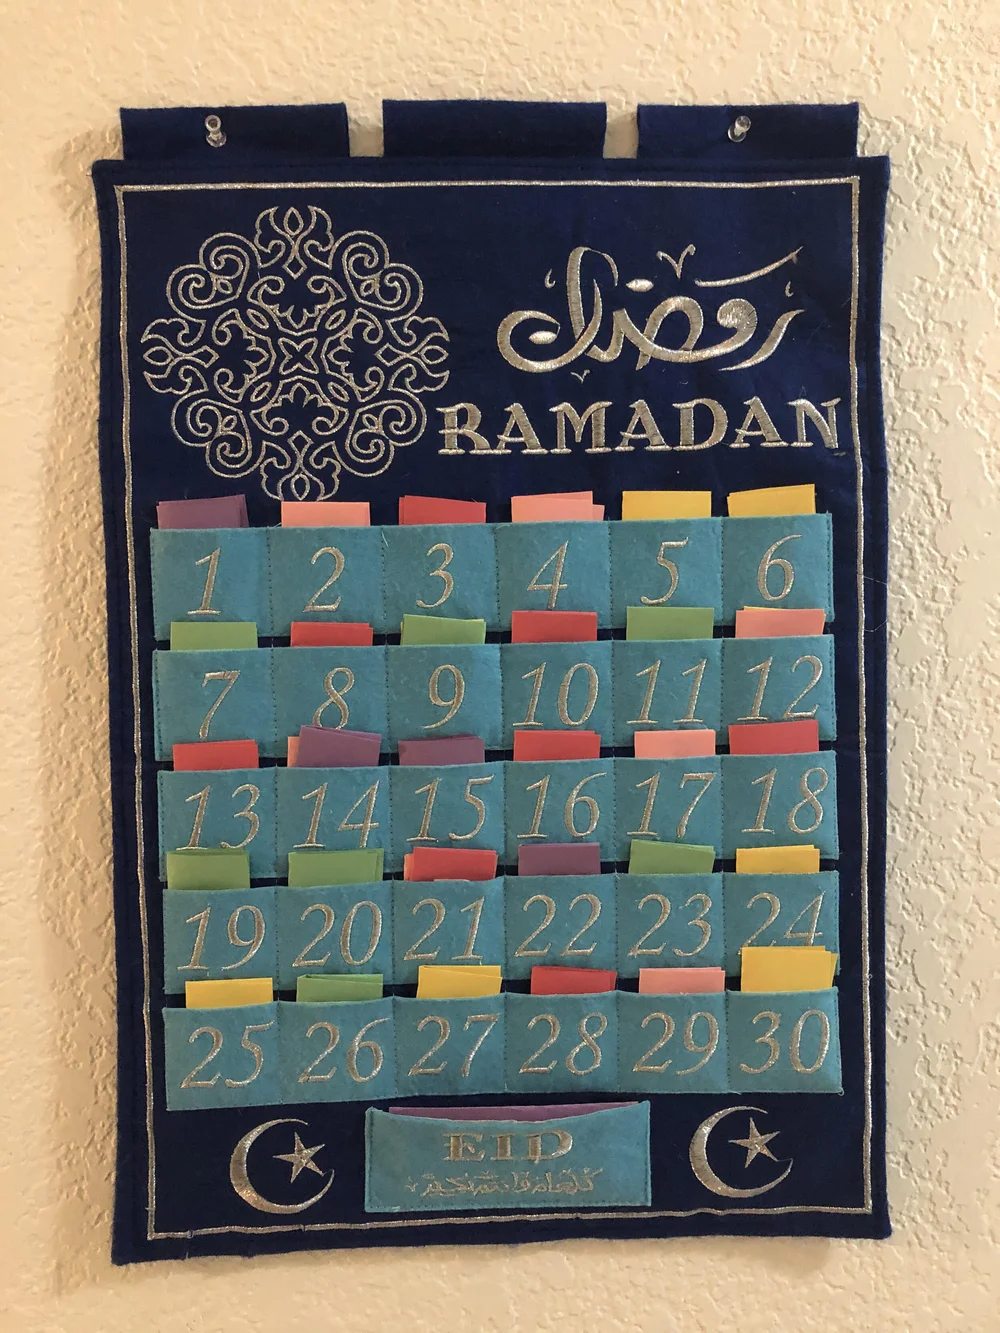 رمضان
RAMADAN
1 2 3 4 5 6
7 8 9 10 11 12
13 14 15 16 17 18
19 20 21 22 23 24
25 26 27 28 29 30
EID
كل عام وأنتم بخير